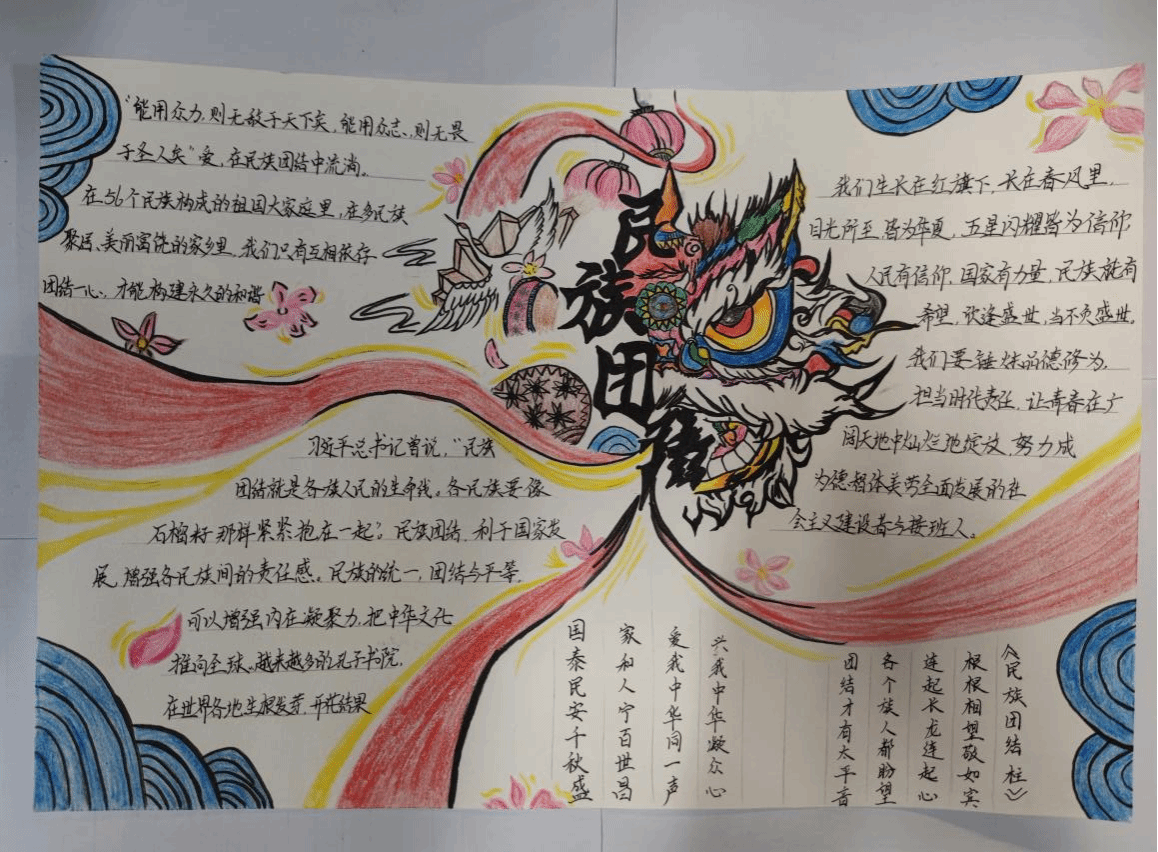 民族团结
"能用众力,则无敌于天下矣,能用众志,则无畏
于圣人矣"爱,在民族团结中流淌。
在56个民族构成的祖国大家庭里,在多民族
聚居、美丽富饶的家乡里,我们只有互相依存
团结一心,才能构建永久的和谐
习近平总书记曾说,"民族
团结就是各族人民的生命线。各民族要像
石榴籽那样紧紧抱在一起;民族团结,利于国家发
展,增强各民族间的责任感。民族的统一,团结与平等,
可以增强内在凝聚力,把中华文化
推向全球。越来越多的孔子书院,
在世界各地生根发芽,开花结果
我们生长在红旗下,长在春风里,
目光所至,皆为华夏,五星闪耀皆为信仰,
人民有信仰,国家有力量,民族就有
希望,欣逢盛世,当不负盛世,
我们要锤炼品德修为,
担当时代责任,让青春在广
阔天地中灿烂地绽放,努力成
为德智体美劳全面发展的社
会主义建设者与接班人。
《民族团结柱》
根根相望敬如宾
连起长龙连起心
各个族人都盼望
团结才有太平音
兴我中华凝众心
爱我中华同一声
家和人宁百世昌
国泰民安千秋盛